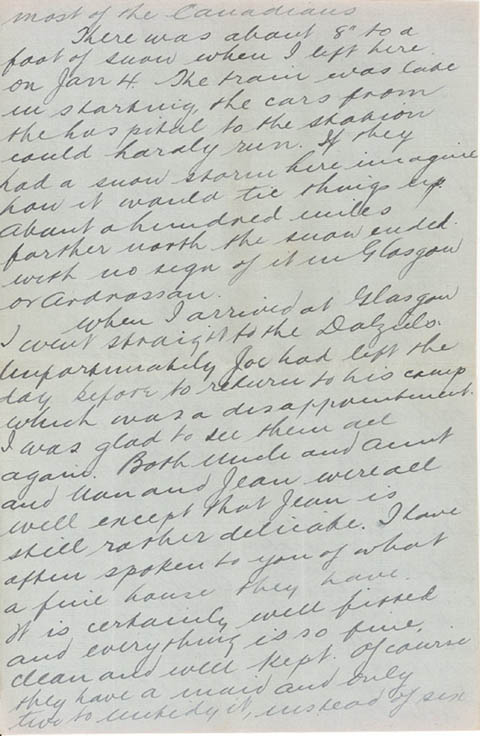 most of the Canadians
There was about 8" to a
foot of snow when I left here
on Jan 4. The train was late
in starting, the cars from
the hospital to the station
could hardly run. If they
had a snow storm here imagine
how it would tie things up.
About a hundred miles
farther north the snow ended
with no sign of it in Glasgow
or Ardrossan.
When I arrived at Glasgow
I went straight to the Dalziels.
Unfortunately Joe had left the
day before to return to his camp
which was a disappointment.
I was glad to see them all
again. Both Uncle and Aunt
and Nan and Jean were all
well except that Jean is
still rather delicate. I have
often spoken to you of what
a fine house they have.
It is certainly well fitted
and everything is so fine,
clean and well kept. Of course
they have a maid and only
two to untidy it, instead of six